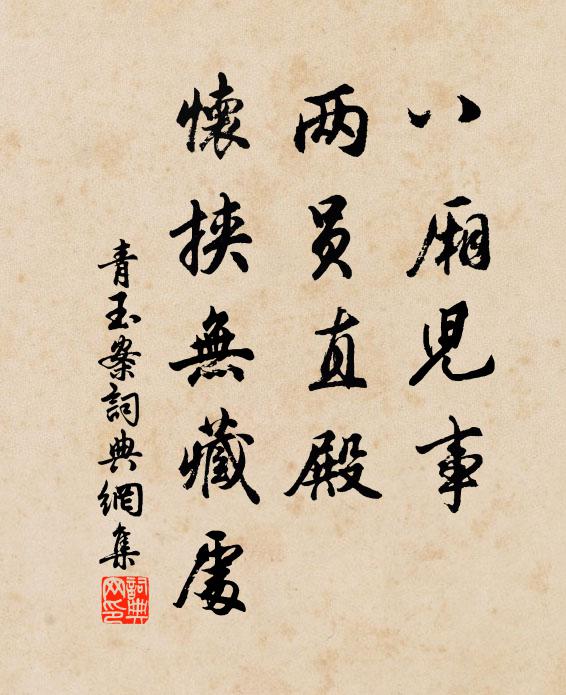 八厢兒事
两员直殿
懷挾無藏處
青玉案詞典網集
詞典网印